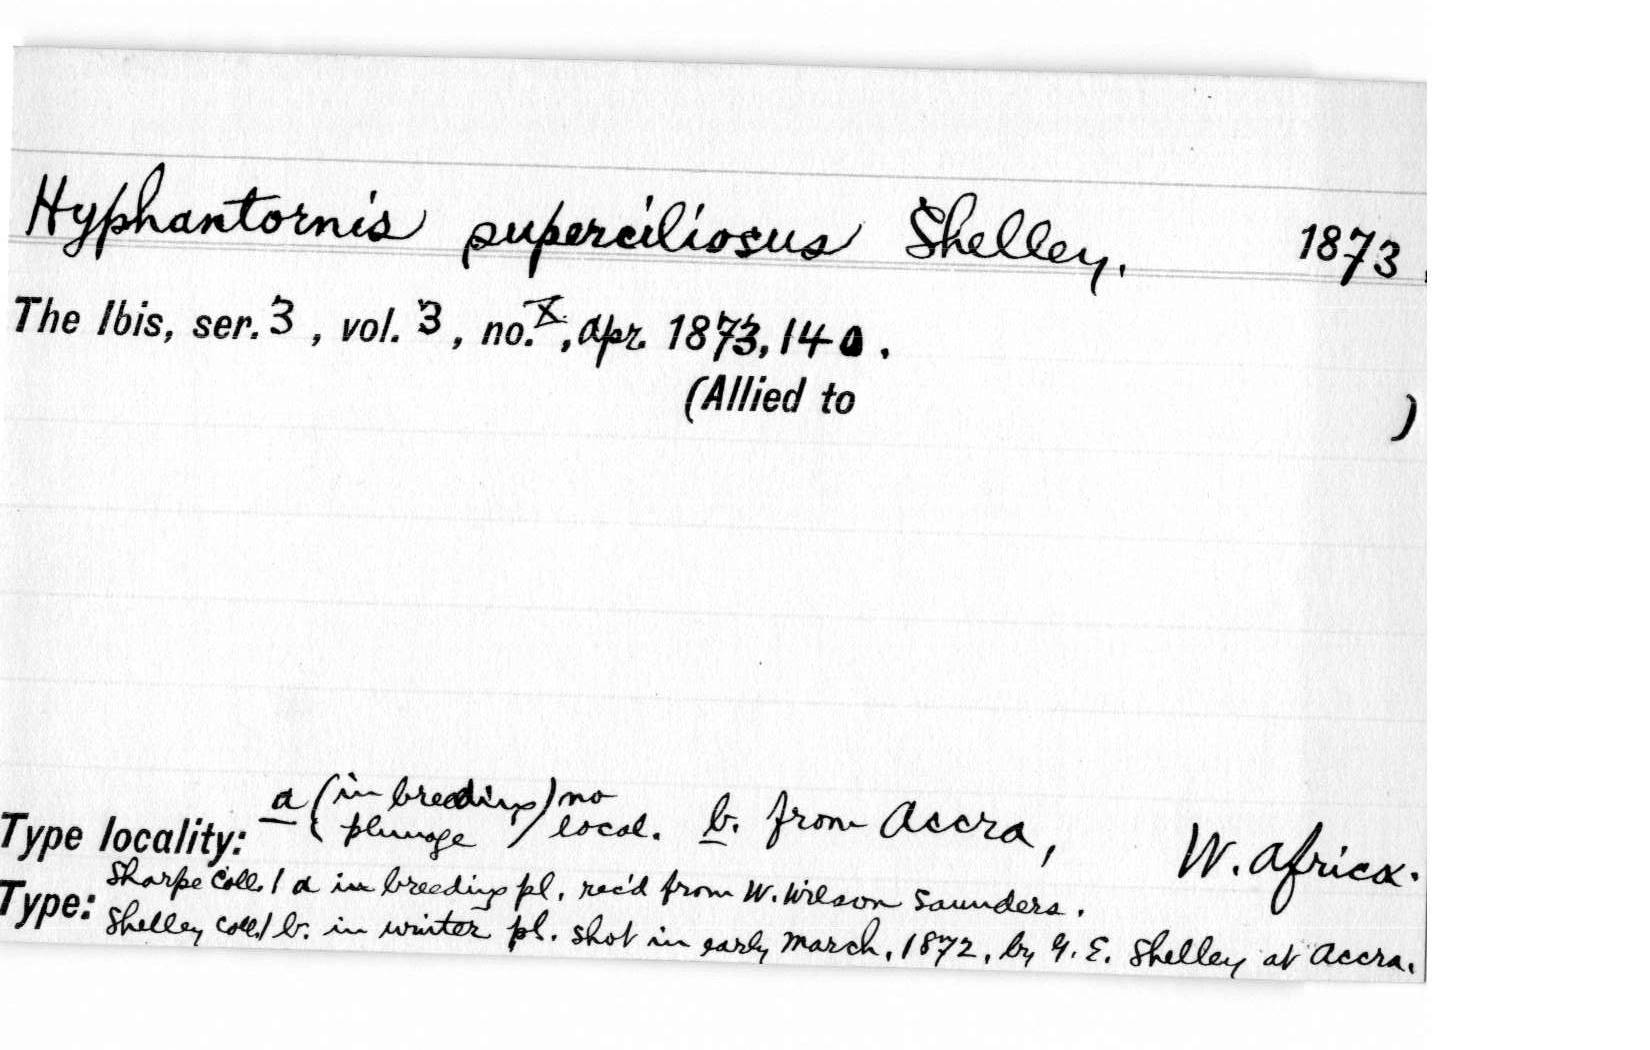 Hyphantornis superciliosus Shelley. 1873.
The Ibis, ser. 3, vol. 3, no. X, Apr. 1873, 140.
(Allied to )
Type locality: a (in breeding plumage) no local. b. from Accra, W. Africa.
Type: Sharpe Coll. / a in breeding pl. rec'd from W. Wilson Saunders.
Shelley Coll. / b. in winter pl. shot in early March, 1872, by G. E. Shelley at Accra.